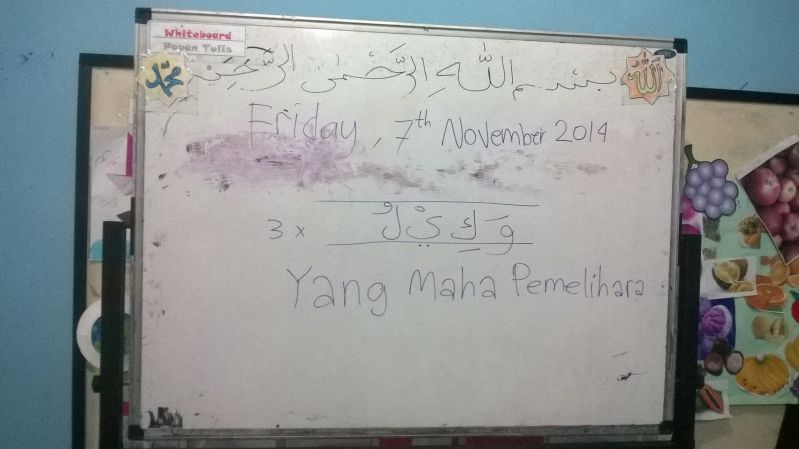 Whiteboard
Papan Tulis
بسم اللّٰه الرّحمٰن الرّحيم
محمد
الله
Friday, 7th November 2014
3 x وَ كِ يْ لُ
Yang Maha Pemelihara